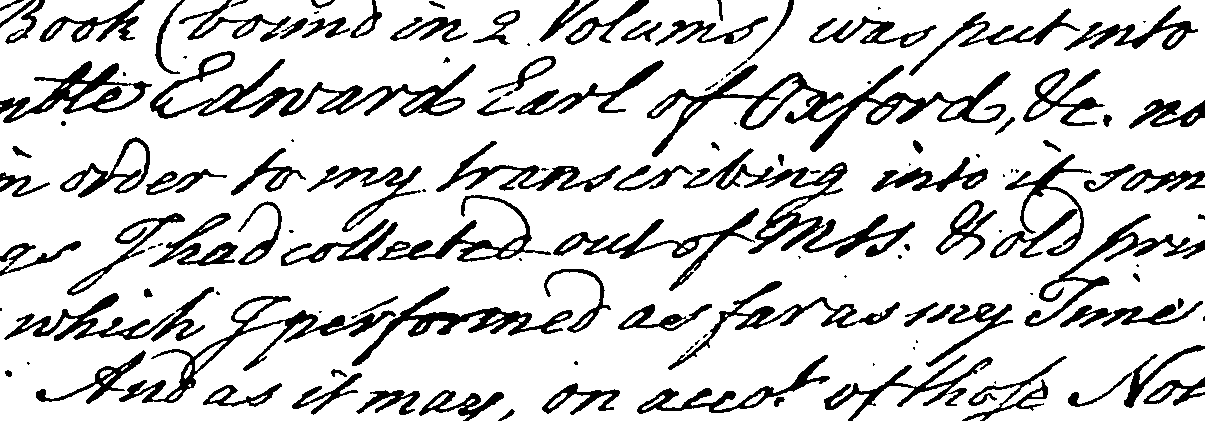 Book (bound in 2 Volums) was put into
Edward Earl of Oxford, &c.
in order to my transcribing into it som
gs I had collected out of Mss. & old prin
which I performed as far as my Time
And as it may, on accot. of those Not